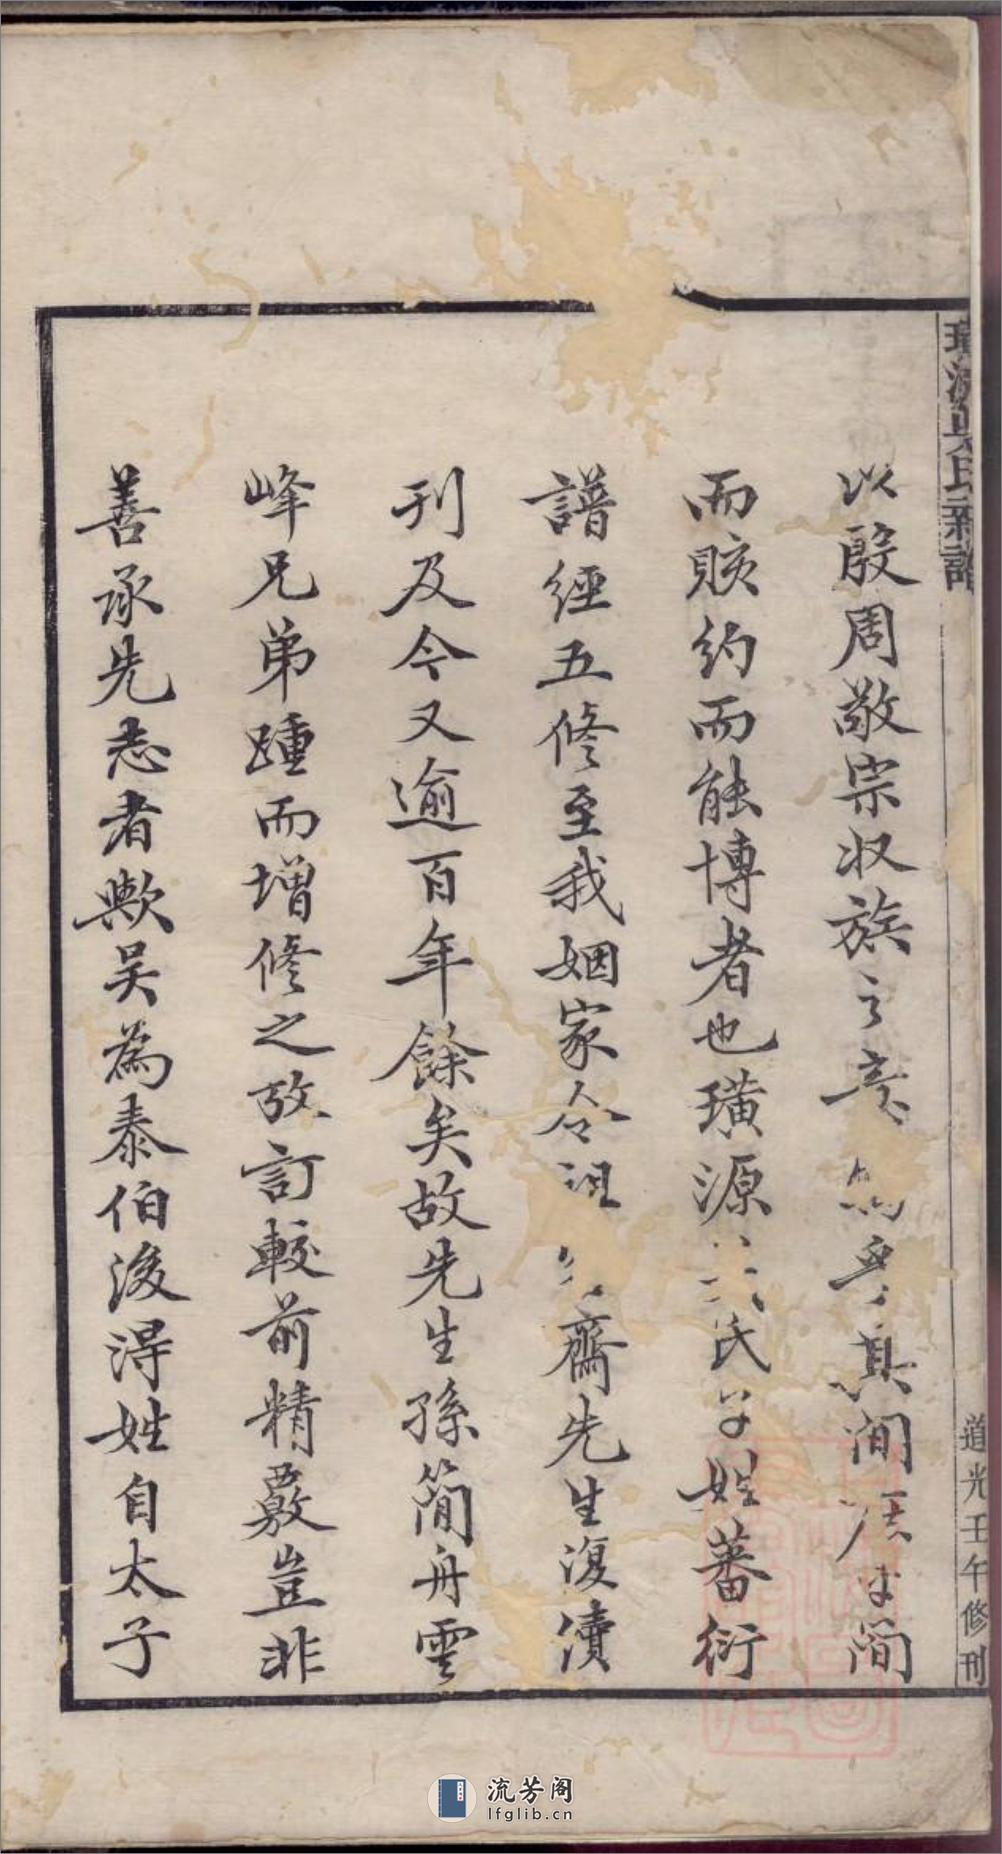 源吳氏新譜
道光壬午修刊
以殷周敬宗收族之意其間居于簡
而賅約而能博者也璜源氏子姓蕃衍
譜經五修至我姻家令祖齋先生復續
刊及今又逾百年餘矣故先生孫簡舟雲
峰兄弟踵而增修之攷訂較前精覈豈非
善承先志者歟吳為泰伯後得姓自太子
流芳阁
lfglib.cn